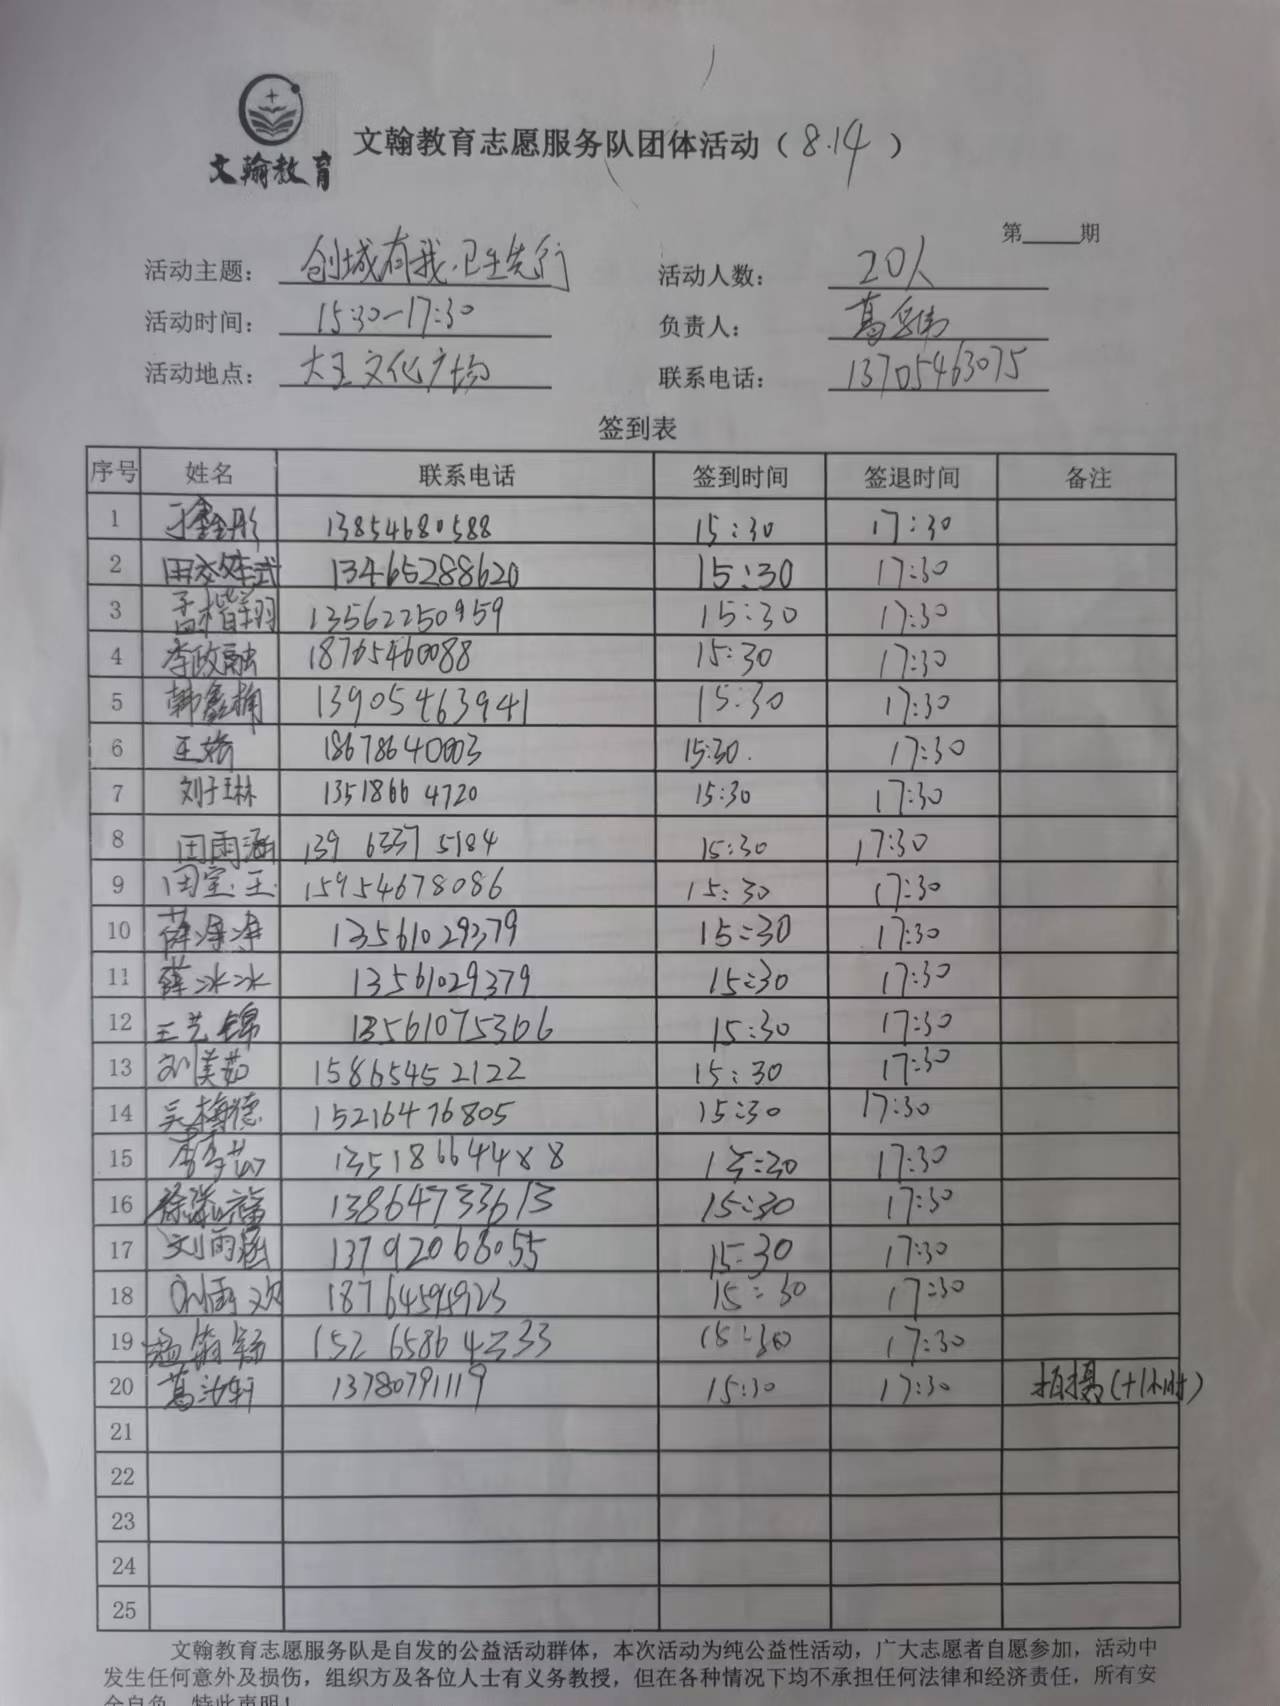 文翰教育
文翰教育志愿服务队团体活动（8.14）
第____期
活动主题： 创城有我.卫生先行 活动人数： 20人
活动时间： 15:30—17:30 负责人： 葛
活动地点： 大王文化广场 联系电话： 13705463075
签到表
序号 姓名 联系电话 签到时间 签退时间 备注
1 于鑫彤 13854680588 15:30 17:30
2 田 13465288620 15:30 17:30
3 孟楷翔 13562250959 15:30 17:30
4 李政融 18765460088 15:30 17:30
5 韩鑫楠 13905463941 15:30 17:30
6 王娇 18678640003 15:30. 17:30
7 刘子琳 1351866 4720 15:30 17:30
8 田雨涵 139 6337 5184 15:30 17:30
9 田宝玉 15954678086 15:30 17:30
10 薛净净 13561029379 15:30 17:30
11 薛冰冰 13561029379 15:30 17:30
12 王艺锦 13561075366 15:30 17:30
13 刘美茹 15865452122 15:30 17:30
14 吴梅德 15216476805 15:30 17:30
15 李 15:30 17:30
16 徐 13864733613 15:30 17:30
17 刘雨涵 13792068055 15:30 17:30
18 15:30 17:30
19 152 6586 4233 15:30 17:30
20 葛 13780791119 15:30 17:30 拍摄(+1小时)
21
22
23
24
25
文翰教育志愿服务队是自发的公益活动群体，本次活动为纯公益性活动，广大志愿者自愿参加，活动中
发生任何意外及损伤，组织方及各位人士有义务教授，但在各种情况下均不承担任何法律和经济责任，所有安
全自负，特此声明！